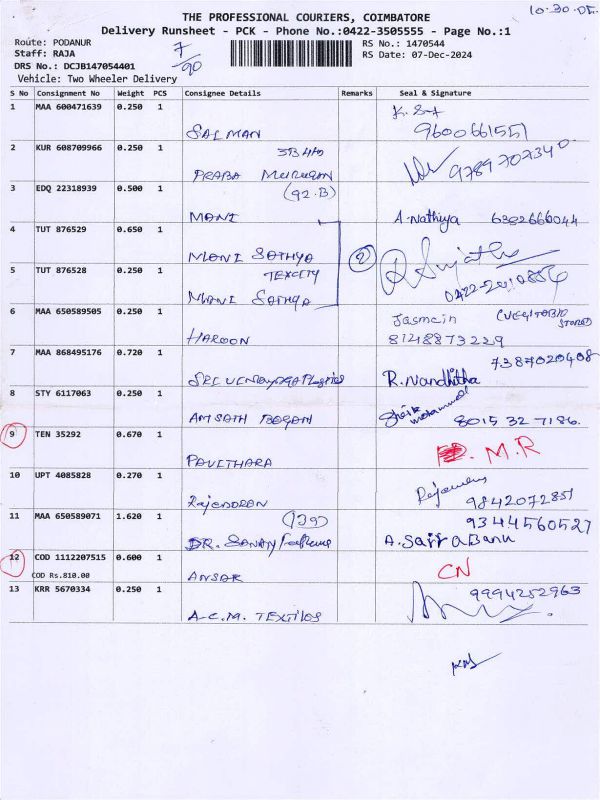 10.30.
THE PROFESSIONAL COURIERS, COIMBATORE
Delivery Runsheet - PCK - Phone No.:0422-3505555 - Page No.:1
Route: PODANUR
Staff: RAJA
DRS No.: DCJB147054401
Vehicle: Two Wheeler Delivery
7/90
RS No.: 1470544
RS Date: 07-Dec-2024
S No Consignment No Weight PCS Consignee Details Remarks Seal & Signature
1 MAA 600471639 0.250 1 SALMAN 9600661551
2 KUR 608709966 0.250 1 PRABA MURUGAN 9789707340
3 EDQ 22318939 0.500 1 (92.B) MANI A.Nathiya 6302666044
4 TUT 876529 0.650 1 MANI SATHYA
5 TUT 876528 0.250 1 MANI SATHYA 2 0422-2410856
6 MAA 650589505 0.250 1 HAROON Jasmein 8124873229
7 MAA 868495176 0.720 1 SRI R.Nandhitha 7387020408
8 STY 6117063 0.250 1 AMSATH BEGAM 8015 32 7186.
9 TEN 35292 0.670 1 PAVITHARA M.R
10 UPT 4085828 0.270 1 RAJENDRAN 9842072851
11 MAA 650589071 1.620 1 DR. SANAY A.SairaBanu 9344560527
12 COD 1112207515 0.600 1 ANSAR CN
COD Rs.810.00
13 KRR 5670334 0.250 1 A.C.M. TEXTILES 9994252963